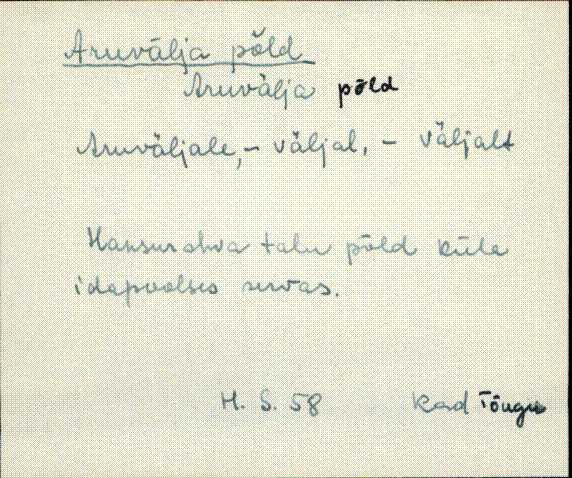 Aruvälja põld
Aruvälja põld
Aruväljale, - väljal, - väljalt
Hansurahva talu põld küla
idapoolses servas.
H. S. 58 Kad Tõugu